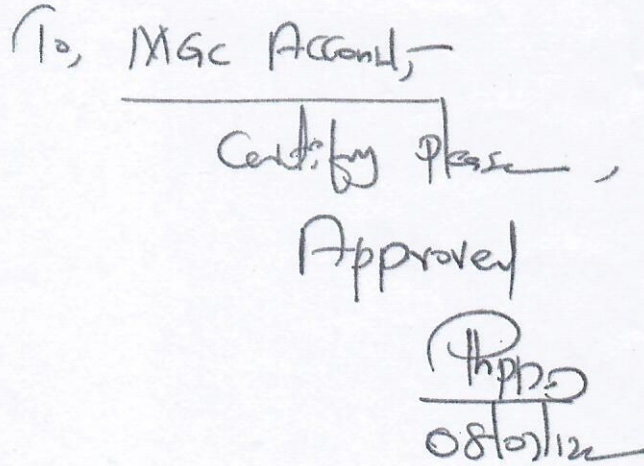 To, MGC Account,-
Certify Please,
Approved
08/07/12